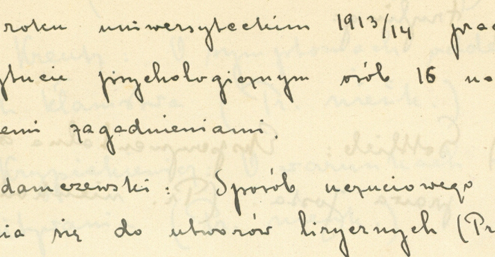 roku uniwersyteckim 1913/14 prac
ytucie psychologicznym osób 16 na
emi zagadnieniami.
damczewski: Sposób uczuciowego
nia się do utworów lirycznych (Pr